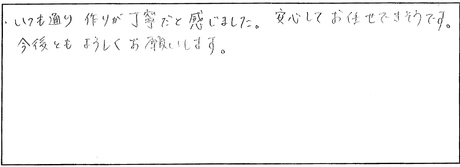 ・いつも通り 作りが丁寧だと感じました。 安心してお任せできそうです。
今後ともよろしくお願いします。